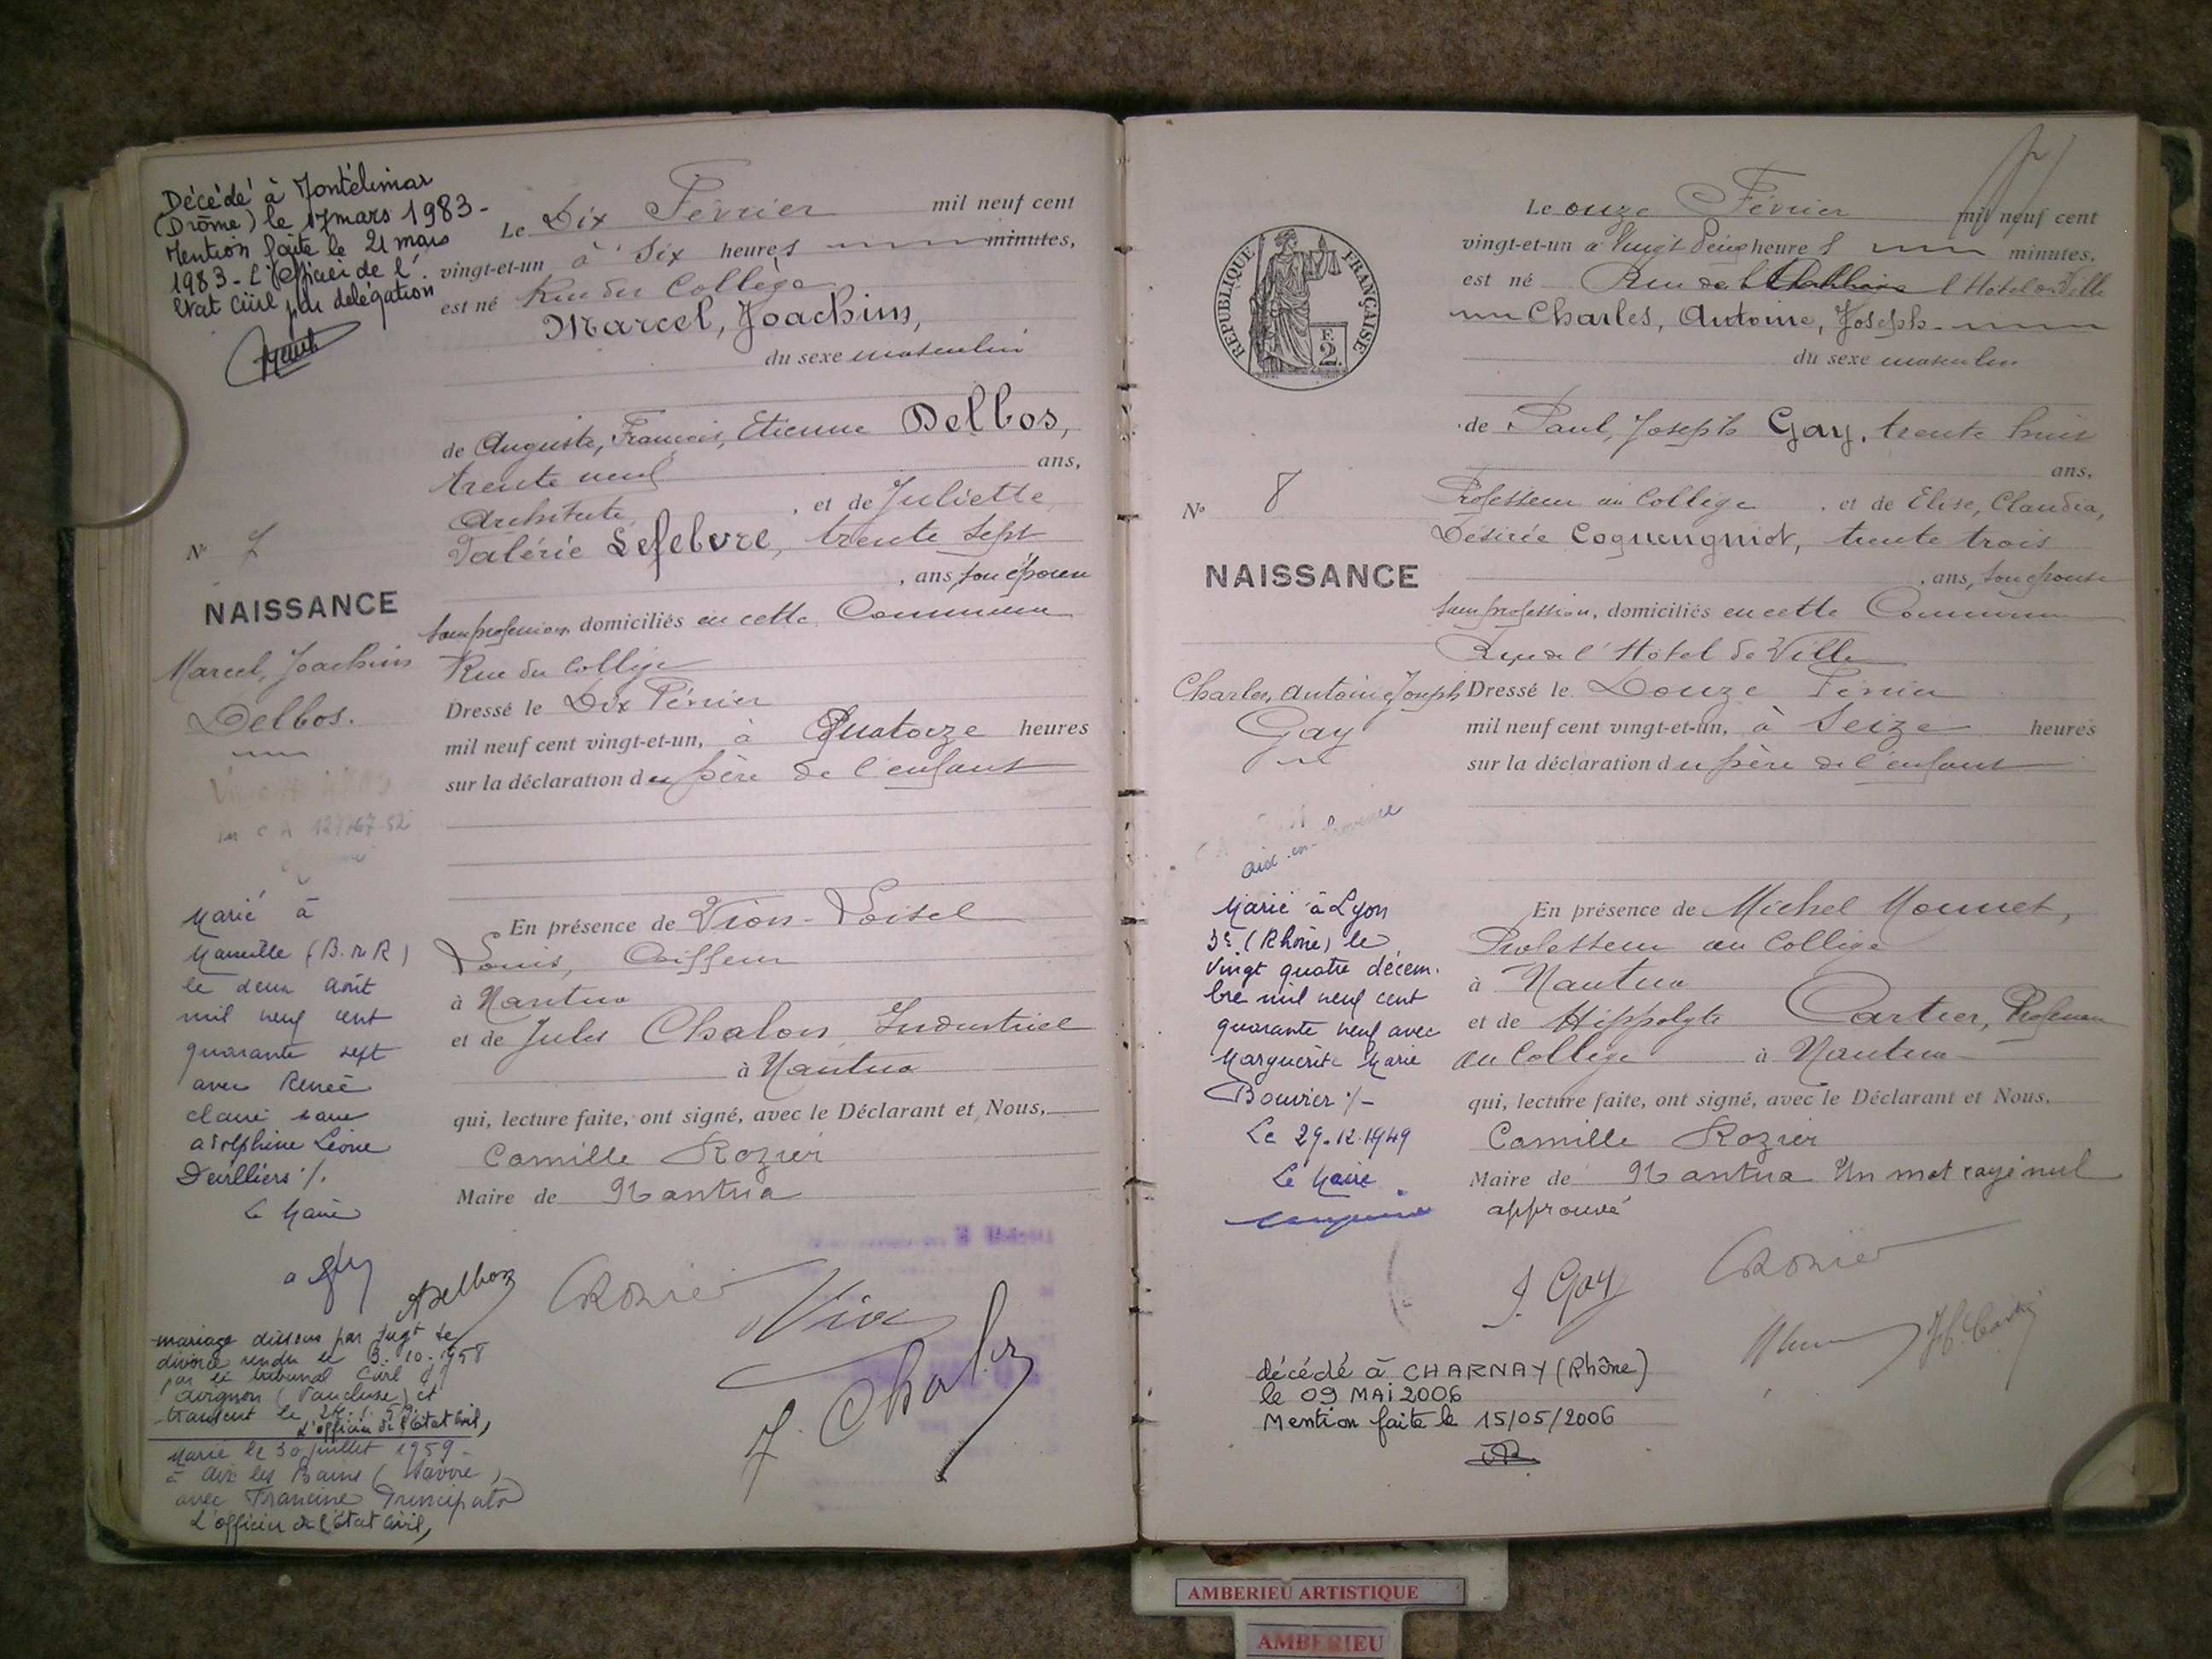 Décédé à Montélimar
(Drôme) le 17 mars 1983 -
Mention faite le 21 mars
1983 - L'Officier de l'
Etat Civil par délégation
Le Dix Février mil neuf cent
vingt-et-un à Six heures minutes,
est né Rue du Collège
Marcel, Joachim,
du sexe masculin
de Auguste, François, Etienne Delbos,
trente neuf ans,
Architecte, et de Juliette,
Valérie Lefebvre, trente sept
, ans, son épouse
sans profession, domiciliés en cette Commune
Rue du Collège
Dressé le Dix Février
mil neuf cent vingt-et-un, à Quatorze heures
sur la déclaration du père de l'enfant
En présence de Vion-Loisel
Louis, Coiffeur
à Nantua
et de Jules Chalon Industriel
à Nantua
qui, lecture faite, ont signé, avec le Déclarant et Nous,
Camille Rozier
Maire de Nantua
N° 7
NAISSANCE
Marcel, Joachim
Delbos.
Marié à
Marseille (B. du R)
le deux Août
mil neuf cent
quarante sept
avec Renée
Claire
adolphine Léone
Le Maire
ADelbos
CRozier
Vion
J. Chalon
mariage dissous par Jugt de
divorce rendu le 3.10.1958
par le tribunal Civil d'
Avignon (Vaucluse) et
transcrit le
L'officier de l'état civil,
Marié le 30 juillet 1959 -
à Aix les Bains (Savoie)
avec Francine Principato
L'officier de l'état civil,
RÉPUBLIQUE FRANÇAISE
2
Le onze Février mil neuf cent
vingt-et-un à Vingt deux heures minutes,
est né Rue de l'Hôtel de Ville
Charles, Antoine, Joseph
du sexe masculin
de Paul, Joseph Gay, trente huit
ans,
Professeur au Collège, et de Elise, Claudia,
Désirée Coquengniot, trente trois
, ans, son épouse
sans profession, domiciliés en cette Commune
Rue de l'Hôtel de Ville
Dressé le Douze Février
mil neuf cent vingt-et-un, à Seize heures
sur la déclaration du père de l'enfant
En présence de Michel Monnet,
Professeur au Collège
à Nantua
et de Hippolyte Cartier, Professeur
au Collège à Nantua
qui, lecture faite, ont signé, avec le Déclarant et Nous.
Camille Rozier
Maire de Nantua Un mot rayé nul
approuvé
N° 8
NAISSANCE
Charles, Antoine, Joseph
Gay
Aix-en-Provence
Marié à Lyon
3e (Rhône) le
Vingt quatre décem.
bre mil neuf cent
quarante neuf avec
Marguerite Marie
Bouvier ·/-
Le 29.12.1949
Le Maire
J. Gay
CRozier
décédé à CHARNAY (Rhône)
le 09 MAI 2006
Mention faite le 15/05/2006
AMBERIEU ARTISTIQUE
AMBERIEU